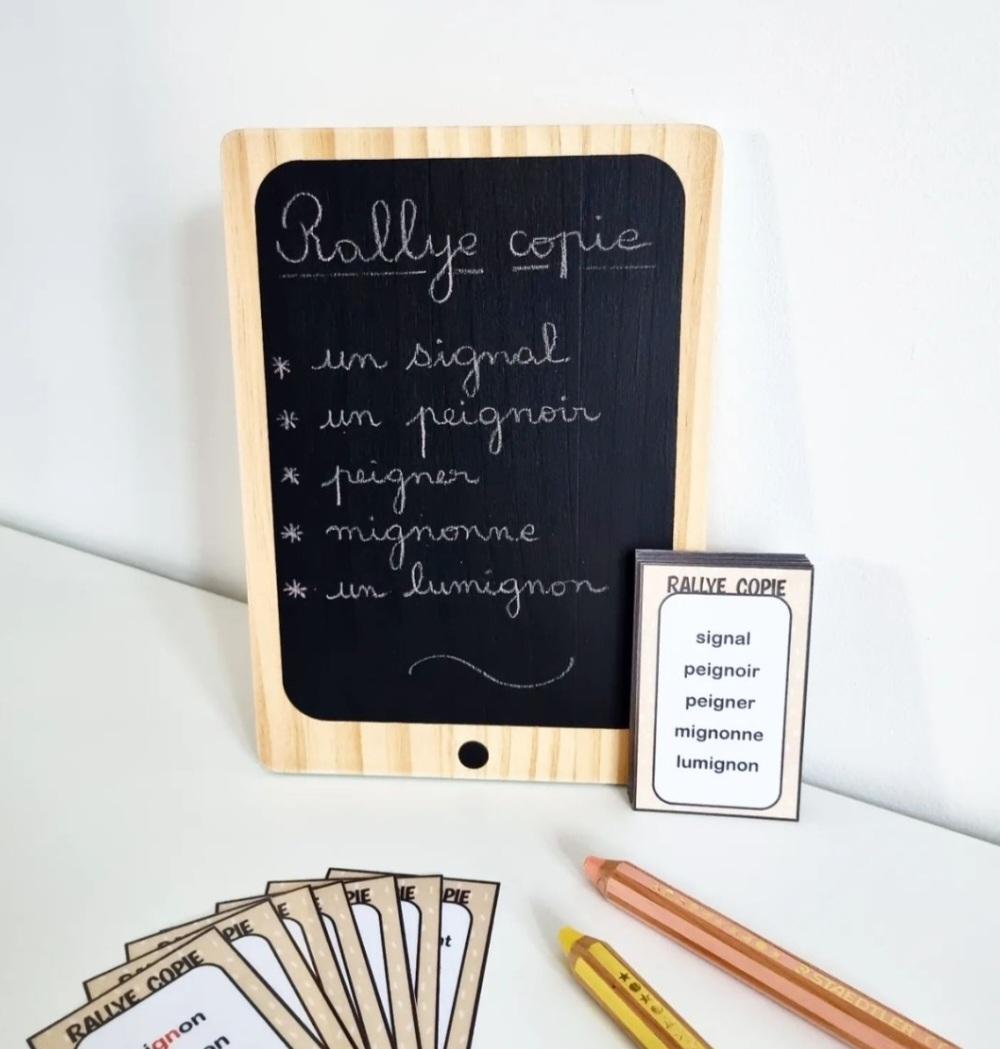 Rallye copie
* un signal
* un peignoir
* peigner
* mignonne
* un lumignon
RALLYE COPIE
signal
peignoir
peigner
mignonne
lumignon
RALLYE COPIE
STAEDTLER